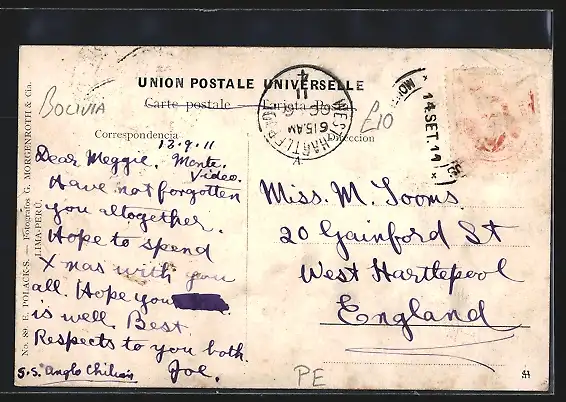 UNION POSTALE UNIVERSELLE
Carte postale
Tarjeta Postal
BOLIVIA
£10
Correspondencia
Direccion
WEST HARTLEPOOL
615AM
11
14.SET.11
12.9.11
Monte.
Video.
Dear Meggie,
Have not forgotten
you altogether.
Hope to spend
Xmas with you
all. Hope you
is well. Best
Respects to you both.
Joe.
S.S. Anglo Chilian
Miss. M. Tooms
20 Gainford St
West Hartlepool
England
PE
No. 89. E. POLACK-S. — Fotografos G. MORGENROTH & Cia.
LIMA-PERU.